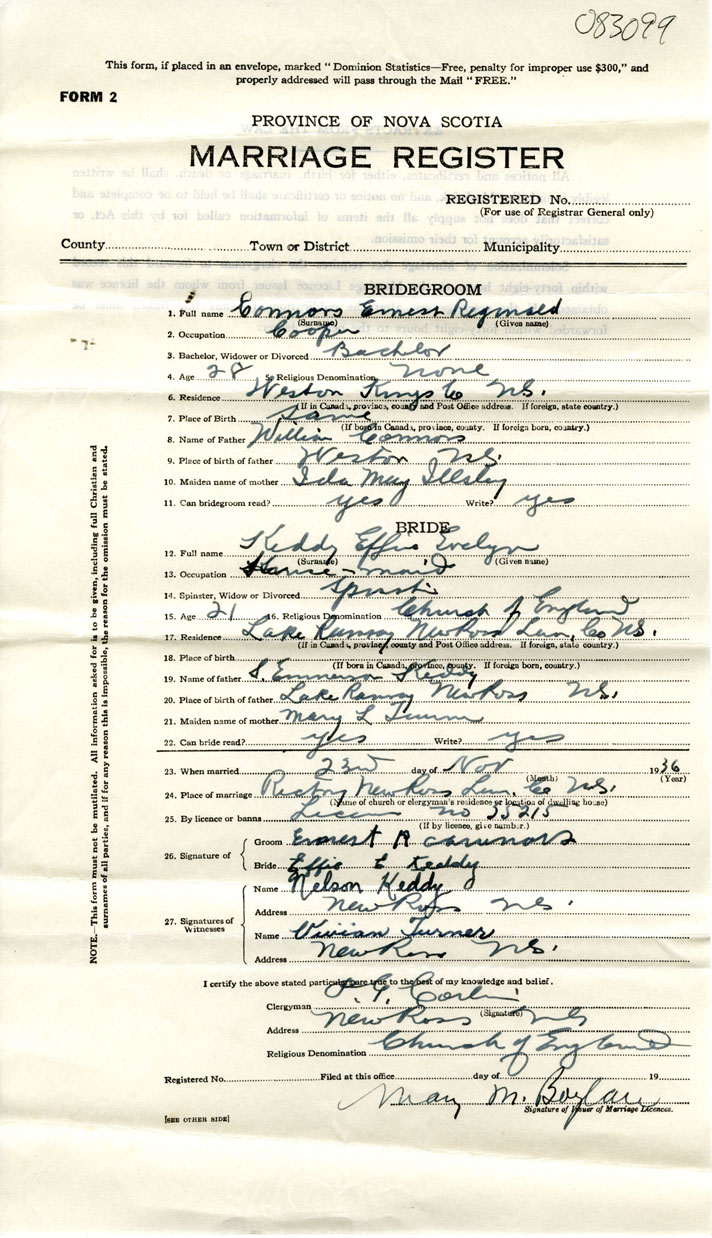 083099
This form, if placed in an envelope, marked "Dominion Statistics—Free, penalty for improper use $300," and
properly addressed will pass through the Mail "FREE."
FORM 2
PROVINCE OF NOVA SCOTIA
MARRIAGE REGISTER
REGISTERED No.
(For use of Registrar General only)
County Town or District Municipality
BRIDEGROOM
1. Full name Connors Ernest Reginald
(Surname) (Given name)
2. Occupation Cooper
3. Bachelor, Widower or Divorced Bachelor
4. Age 28 5. Religious Denomination None
6. Residence Weston Kings Co N.S.
(If in Canada, province, county and Post Office address. If foreign, state country.)
7. Place of Birth Same
(If born in Canada, province, county. If foreign born, country.)
8. Name of Father William Connors
9. Place of birth of father Weston N.S.
10. Maiden name of mother Ida May Illsley
11. Can bridegroom read? yes Write? yes
BRIDE
12. Full name Keddy Effie Evelyn
(Surname) (Given name)
13. Occupation House-maid
14. Spinster, Widow or Divorced Spinster
15. Age 21 16. Religious Denomination Church of England
17. Residence Lake Ramsay New Ross Lun. Co N.S.
(If in Canada, province, county and Post Office address. If foreign, state country.)
18. Place of birth
(If born in Canada, province, county. If foreign born, country.)
19. Name of father S. Emmerson Keddy
20. Place of birth of father Lake Ramsay New Ross N.S.
21. Maiden name of mother Mary L
22. Can bride read? yes Write? yes
23. When married 23rd day of Nov 1936
(Month) (Year)
24. Place of marriage Rectory New Ross Lun. Co N.S.
(Name of church or clergyman's residence or location of dwelling house)
25. By licence or banns Licence no 35215
(If by licence, give number.)
26. Signature of
Groom Ernest R connors
Bride Effie E Keddy
27. Signatures of Witnesses
Name Nelson Keddy
Address New Ross N.S.
Name Vivian Turner
Address New Ross N.S.
I certify the above stated particulars are true to the best of my knowledge and belief.
Clergyman
(Signature)
Address New Ross N.S.
Religious Denomination Church of England
Registered No. Filed at this office day of 19
Mary M. Boylan
Signature of Issuer of Marriage Licences.
[SEE OTHER SIDE]
NOTE.—This form must not be mutilated. All information asked for is to be given, including full Christian and
surnames of all parties, and if for any reason this is impossible, the reason for the omission must be stated.